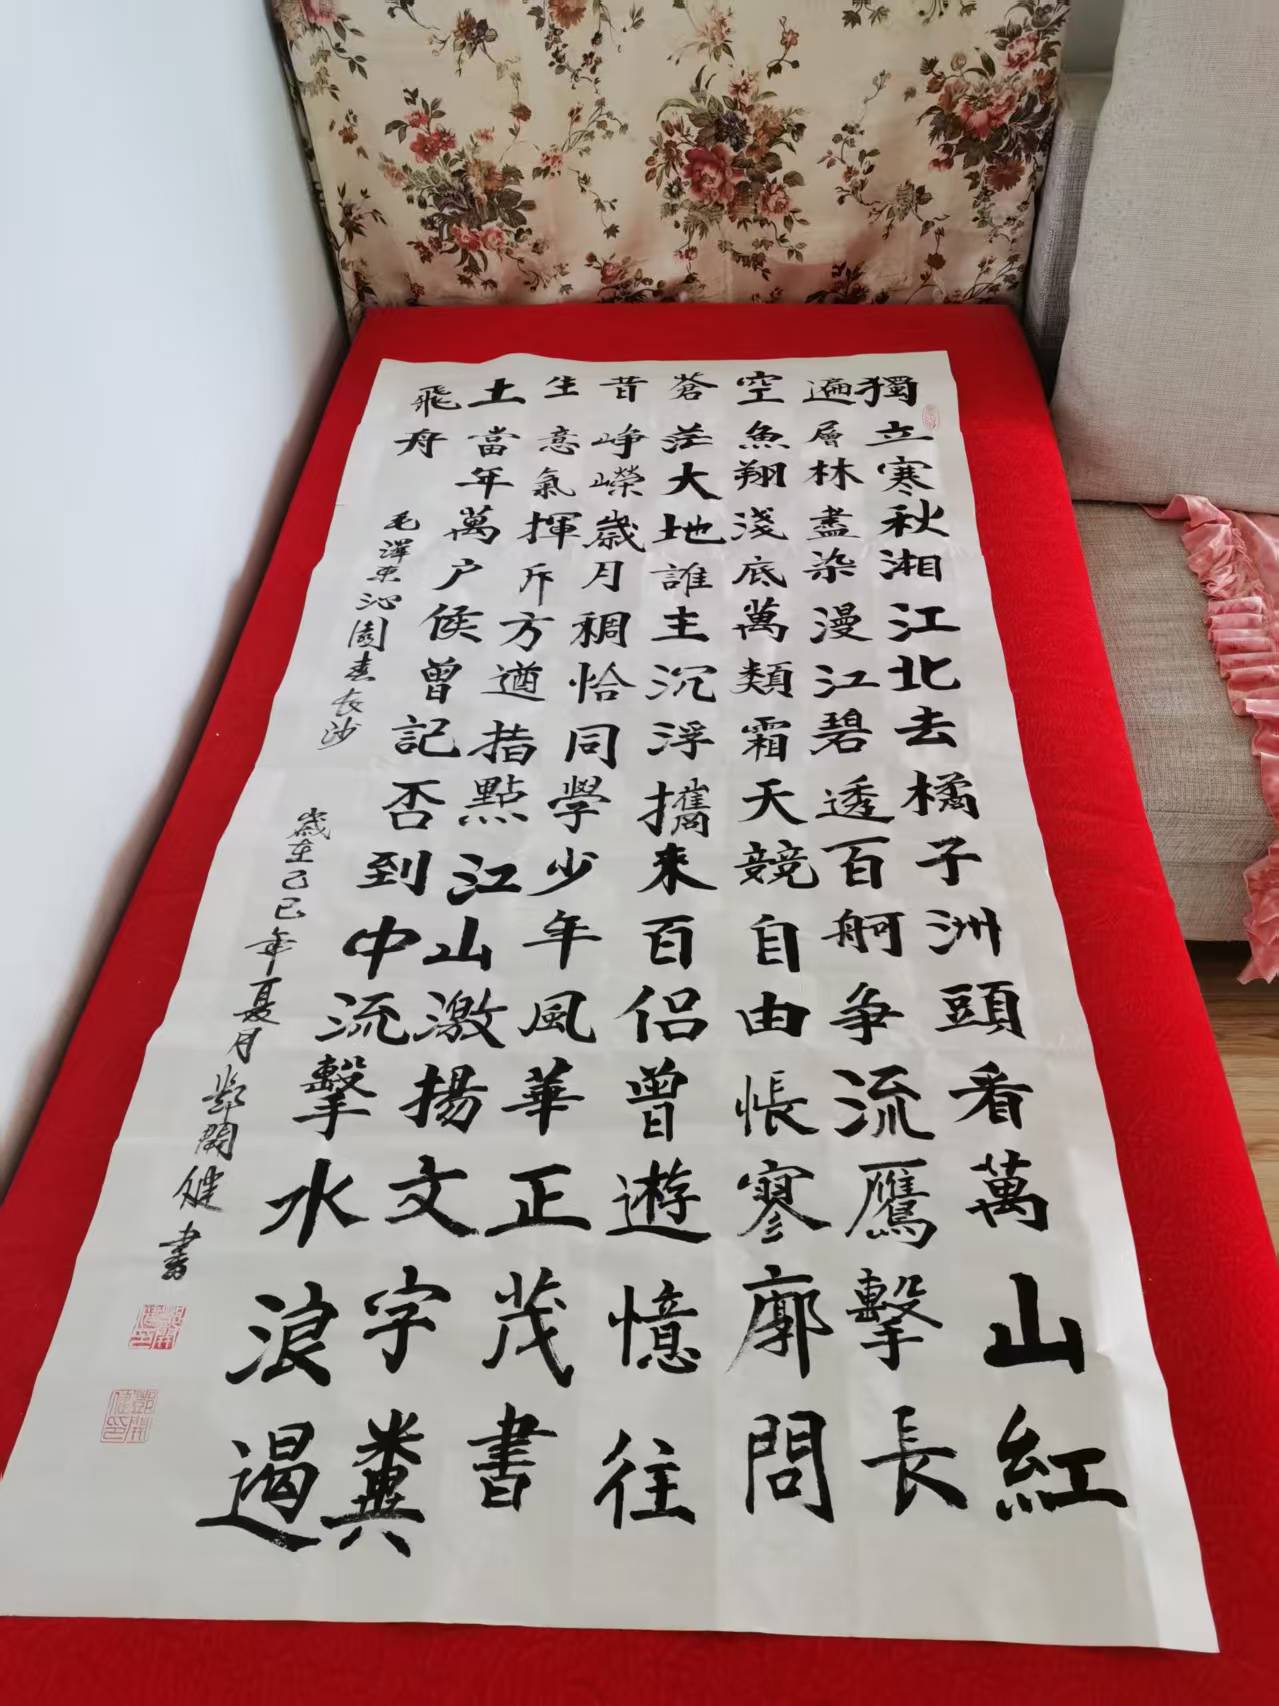 獨立寒秋湘江北去橘子洲頭看萬山紅
遍層林盡染漫江碧透百舸争流鷹擊長
空魚翔淺底萬類霜天競自由悵寥廓問
蒼茫大地誰主沉浮攜來百侣曾遊憶往
昔峥嶸歲月稠恰同學少年風華正茂書
生意氣揮斥方遒指點江山激揚文字糞
土當年萬户侯曾記否到中流擊水浪遏
飛舟
毛澤東沁園春长沙
歲在己巳年夏月鄧開健書
鄧開健印